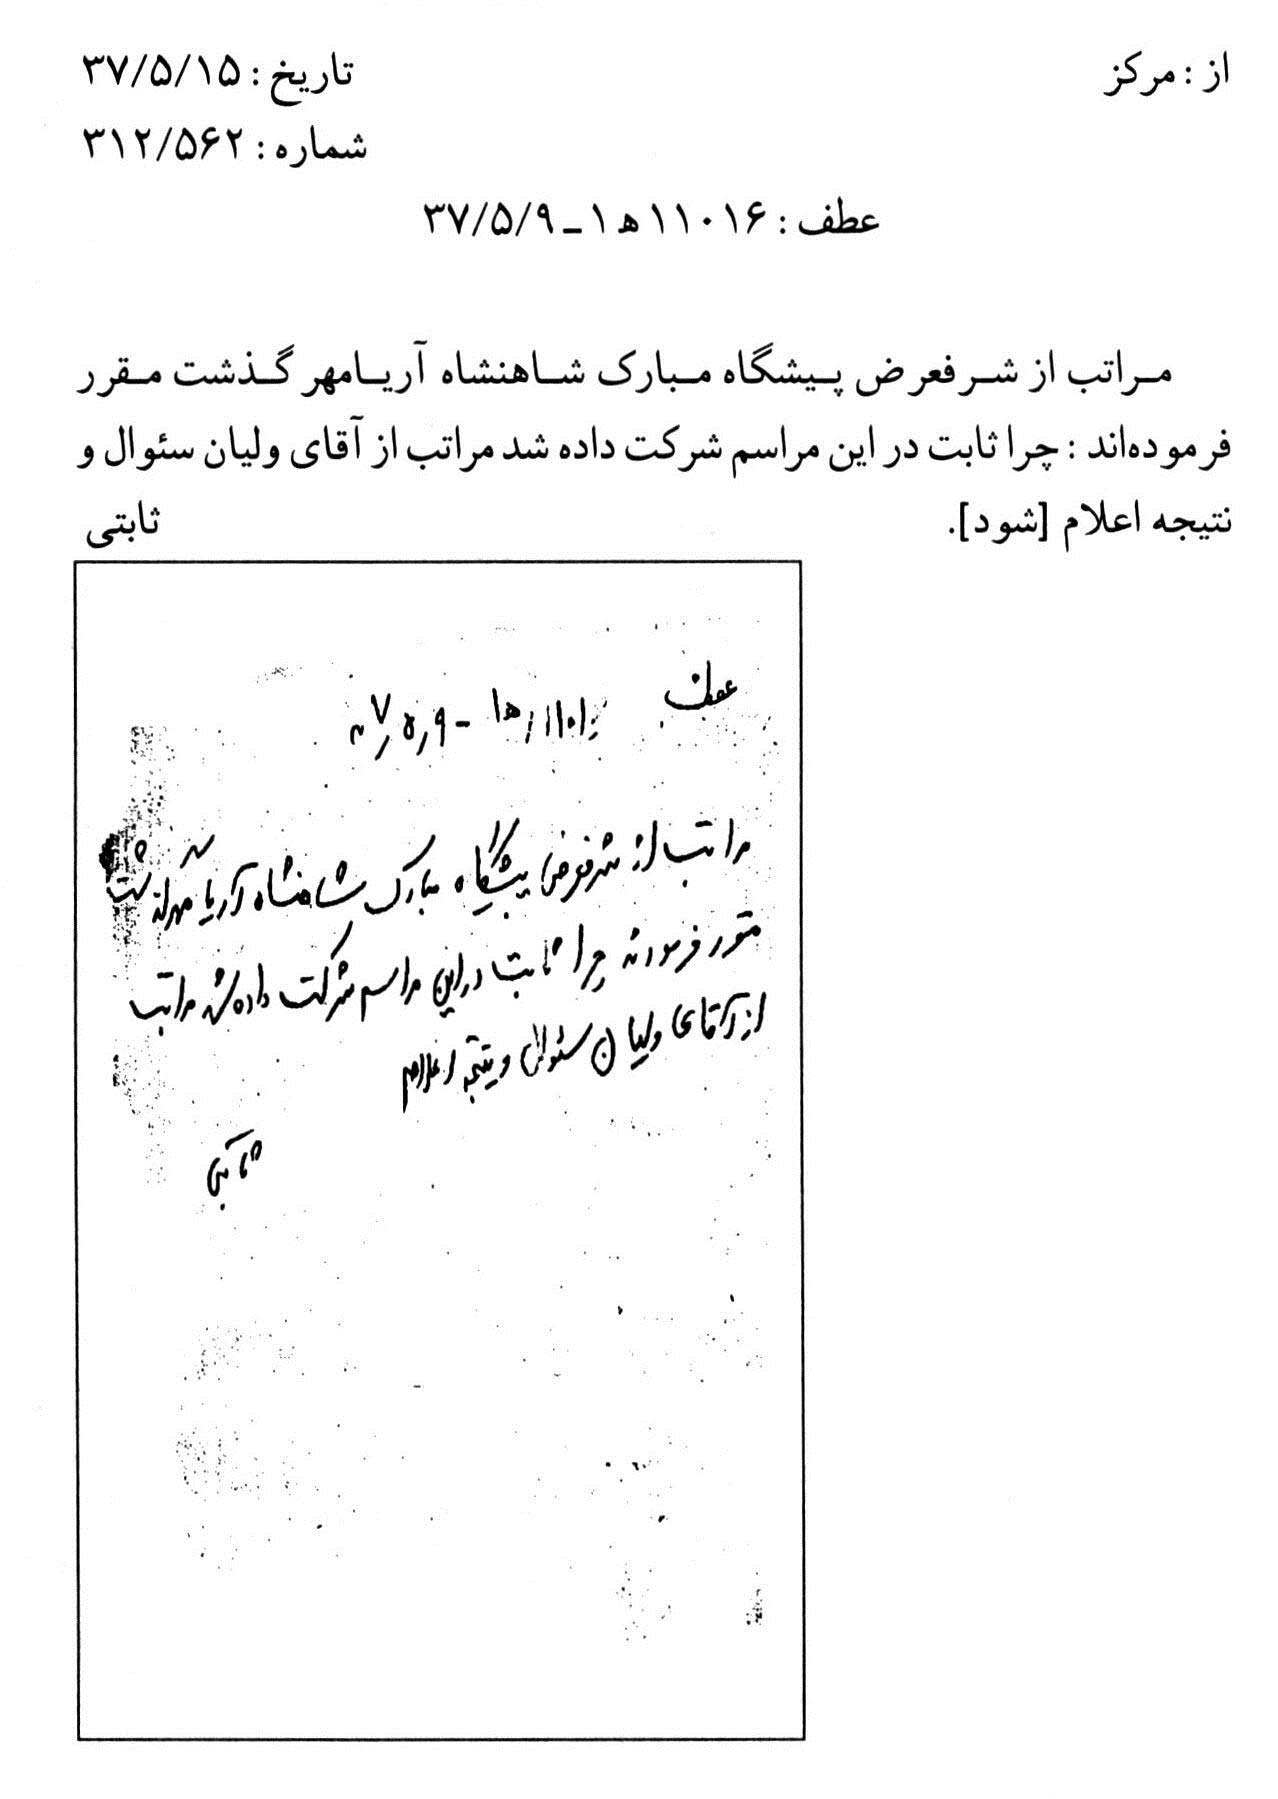 از : مرکز
تاریخ : ۳۷/۵/۱۵
شماره : ۳۱۲/۵۶۲
عطف : ۱۱۰۱۶ ه‍ ۱ ـ ۳۷/۵/۹
مراتب از شرفعرض پیشگاه مبارک شاهنشاه آریامهر گذشت مقرر
فرموده‌اند : چرا ثابت در این مراسم شرکت داده شد مراتب از آقای ولیان سئوال و
نتیجه اعلام [شود].
ثابتی
عطف
مراتب از شرفعرض پیشگاه مبارک شاهنشاه آریامهر گذشت
مقرر فرمودند چرا ثابت در این مراسم شرکت داده شد مراتب
از آقای ولیان سئوال و نتیجه اعلام
ثابتی